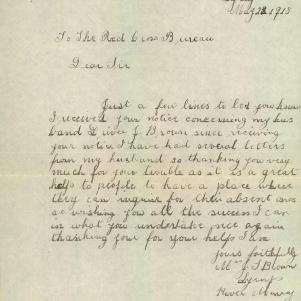 1918
To The Red Cross Bureau
Dear Sir
Just a few lines to let you know
I received your notice concerning my hus
band Driver J Brown since receiving
your notice I have had several letters
from my husband so thanking you very
much for your trouble as it is a great
help to people to have a place where
they can inquire for their absent ones
so wishing you all the success I can
in what you undertake once again
thanking you for your help I am
yours faithfully
Mrs J Brown
River Murray